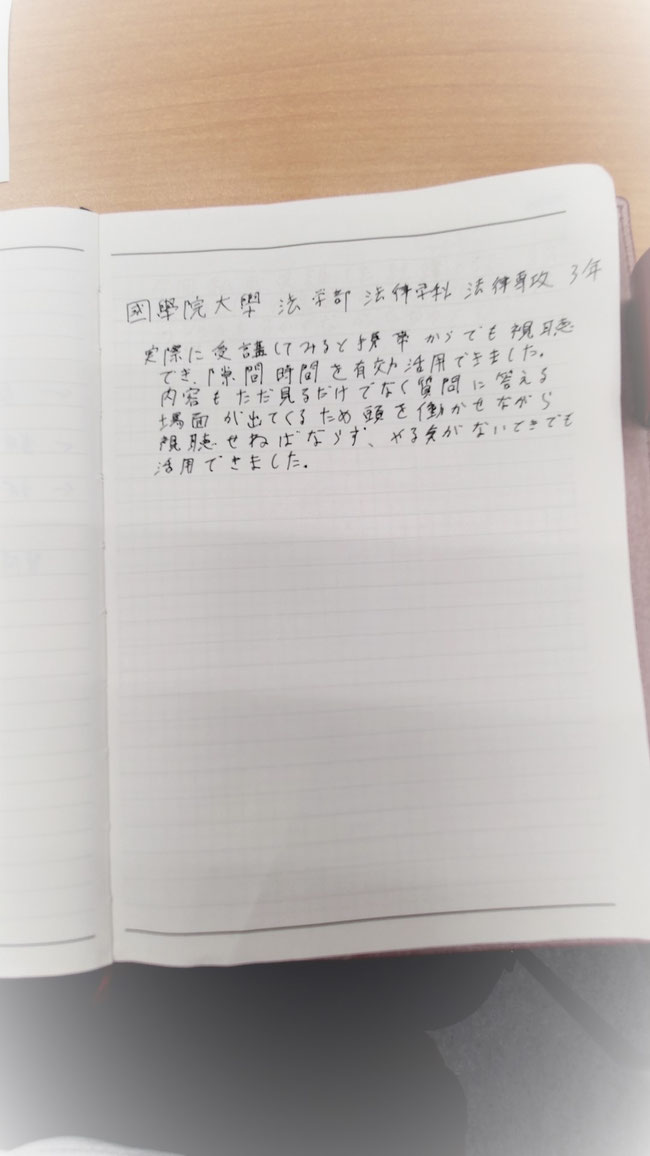 國學院大學 法学部 法律学科 法律専攻 3年
実際に受講してみると携帯からでも視聴
でき、隙間時間を有効活用できました。
内容もただ見るだけでなく質問に答える
場面が出てくるため頭を働かせながら
視聴せねばならず、やる気がないときでも
活用できました。